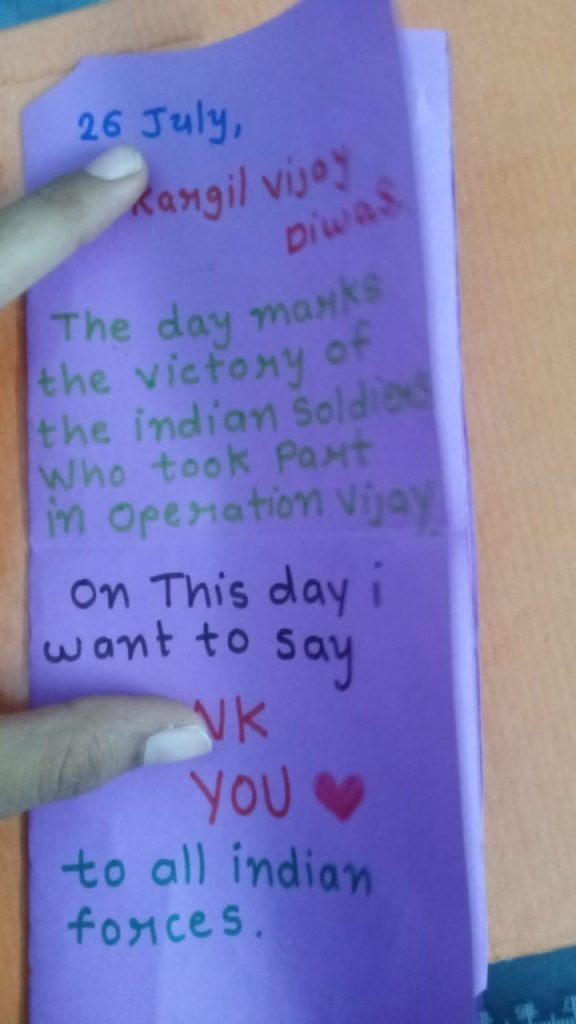 26 July,
Kargil Vijay
Diwas.
The day marks
the victory of
the indian Soldiers
Who took Part
in Operation Vijay.
On This day i
want to say
NK
YOU
to all indian
forces.